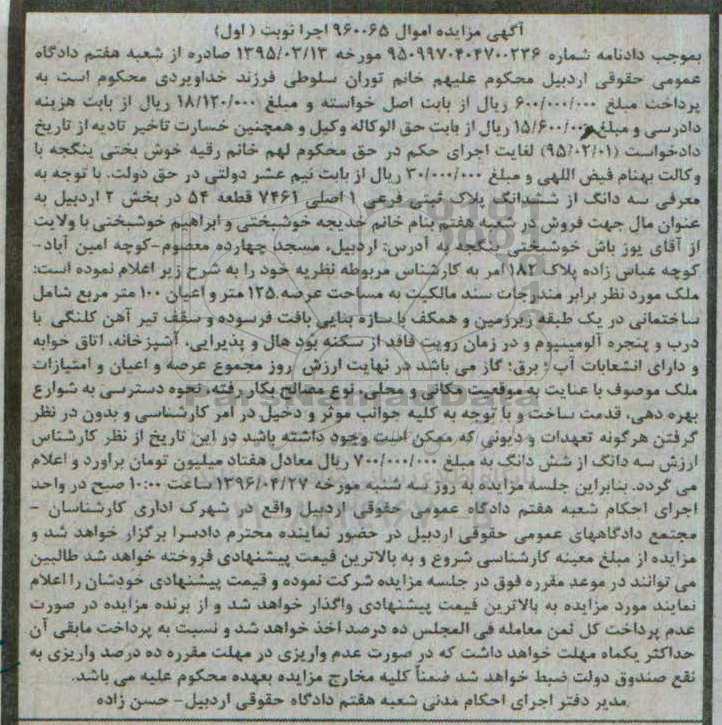 آگهی مزایده اموال ۹۶۰۰۶۵ اجرا نوبت (اول)
بموجب دادنامه شماره ۹۵۰۹۹۷۰۴۰۴۷۰۰۲۳۶ مورخه ۱۳۹۵/۰۳/۱۳ صادره از شعبه هفتم دادگاه
عمومی حقوقی اردبیل محکوم علیهم خانم توران سلوطی فرزند خداویردی محکوم است به
پرداخت مبلغ ۶۰۰/۰۰۰/۰۰۰ ریال از بابت اصل خواسته و مبلغ ۱۸/۱۲۰/۰۰۰ ریال از بابت هزینه
دادرسی و مبلغ ۱۵/۶۰۰/۰۰۰ ریال از بابت حق الوکاله وکیل و همچنین خسارت تاخیر تادیه از تاریخ
دادخواست (۹۵/۰۲/۰۱) لغایت اجرای حکم در حق محکوم لهم خانم رقیه خوش بختی ینگجه با
وکالت بهنام فیض اللهی و مبلغ ۳۰/۰۰۰/۰۰۰ ریال از بابت نیم عشر دولتی در حق دولت. با توجه به
معرفی سه دانگ از ششدانگ پلاک ثبتی فرعی ۱ اصلی ۷۴۶۱ قطعه ۵۴ در بخش ۲ اردبیل به
عنوان مال جهت فروش در شعبه هفتم بنام خانم خدیجه خوشبختی و ابراهیم خوشبختی با ولایت
از آقای یوز باش خوشبختی ینگجه به آدرس: اردبیل، مسجد چهارده معصوم-کوچه امین آباد-
کوچه عباس زاده پلاک ۱۸۲ امر به کارشناس مربوطه نظریه خود را به شرح زیر اعلام نموده است:
ملک مورد نظر برابر مندرجات سند مالکیت به مساحت عرصه ۱۲۵ متر و اعیان ۱۰۰ متر مربع شامل
ساختمانی در یک طبقه زیرزمین و همکف با سازه بنایی بافت فرسوده و سقف تیر آهن کلنگی با
درب و پنجره آلومینیوم و در زمان رویت فاقد از سکنه بود هال و پذیرایی، آشپزخانه، اتاق خوابه
و دارای انشعابات آب ؛ برق؛ گاز می باشد در نهایت ارزش روز مجموع عرصه و اعیان و امتیازات
ملک موصوف با عنایت به موقعیت مکانی و محلی، نوع مصالح بکار رفته، نحوه دسترسی به شوارع
بهره دهی، قدمت ساخت و با توجه به کلیه جوانب موثر و دخیل در امر کارشناسی و بدون در نظر
گرفتن هرگونه تعهدات و دیونی که ممکن است وجود داشته باشد در این تاریخ از نظر کارشناس
ارزش سه دانگ از شش دانگ به مبلغ ۷۰۰/۰۰۰/۰۰۰ ریال معادل هفتاد میلیون تومان براورد و اعلام
می گردد. بنابراین جلسه مزایده به روز سه شنبه مورخه ۱۳۹۶/۰۴/۲۷ ساعت ۱۰:۰۰ صبح در واحد
اجرای احکام شعبه هفتم دادگاه عمومی حقوقی اردبیل واقع در شهرک اداری کارشناسان -
مجتمع دادگاههای عمومی حقوقی اردبیل در حضور نماینده محترم دادسرا برگزار خواهد شد و
مزایده از مبلغ معینه کارشناسی شروع و به بالاترین قیمت پیشنهادی فروخته خواهد شد طالبین
می توانند در موعد مقرره فوق در جلسه مزایده شرکت نموده و قیمت پیشنهادی خودشان را اعلام
نمایند مورد مزایده به بالاترین قیمت پیشنهادی واگذار خواهد شد و از برنده مزایده در صورت
عدم پرداخت کل ثمن معامله فی المجلس ده درصد اخذ خواهد شد و نسبت به پرداخت مابقی آن
حداکثر یکماه مهلت خواهد داشت که در صورت عدم واریزی در مهلت مقرره ده درصد واریزی به
نفع صندوق دولت ضبط خواهد شد ضمناً کلیه مخارج مزایده بعهده محکوم علیه می باشد.
مدیر دفتر اجرای احکام مدنی شعبه هفتم دادگاه حقوقی اردبیل- حسن زاده